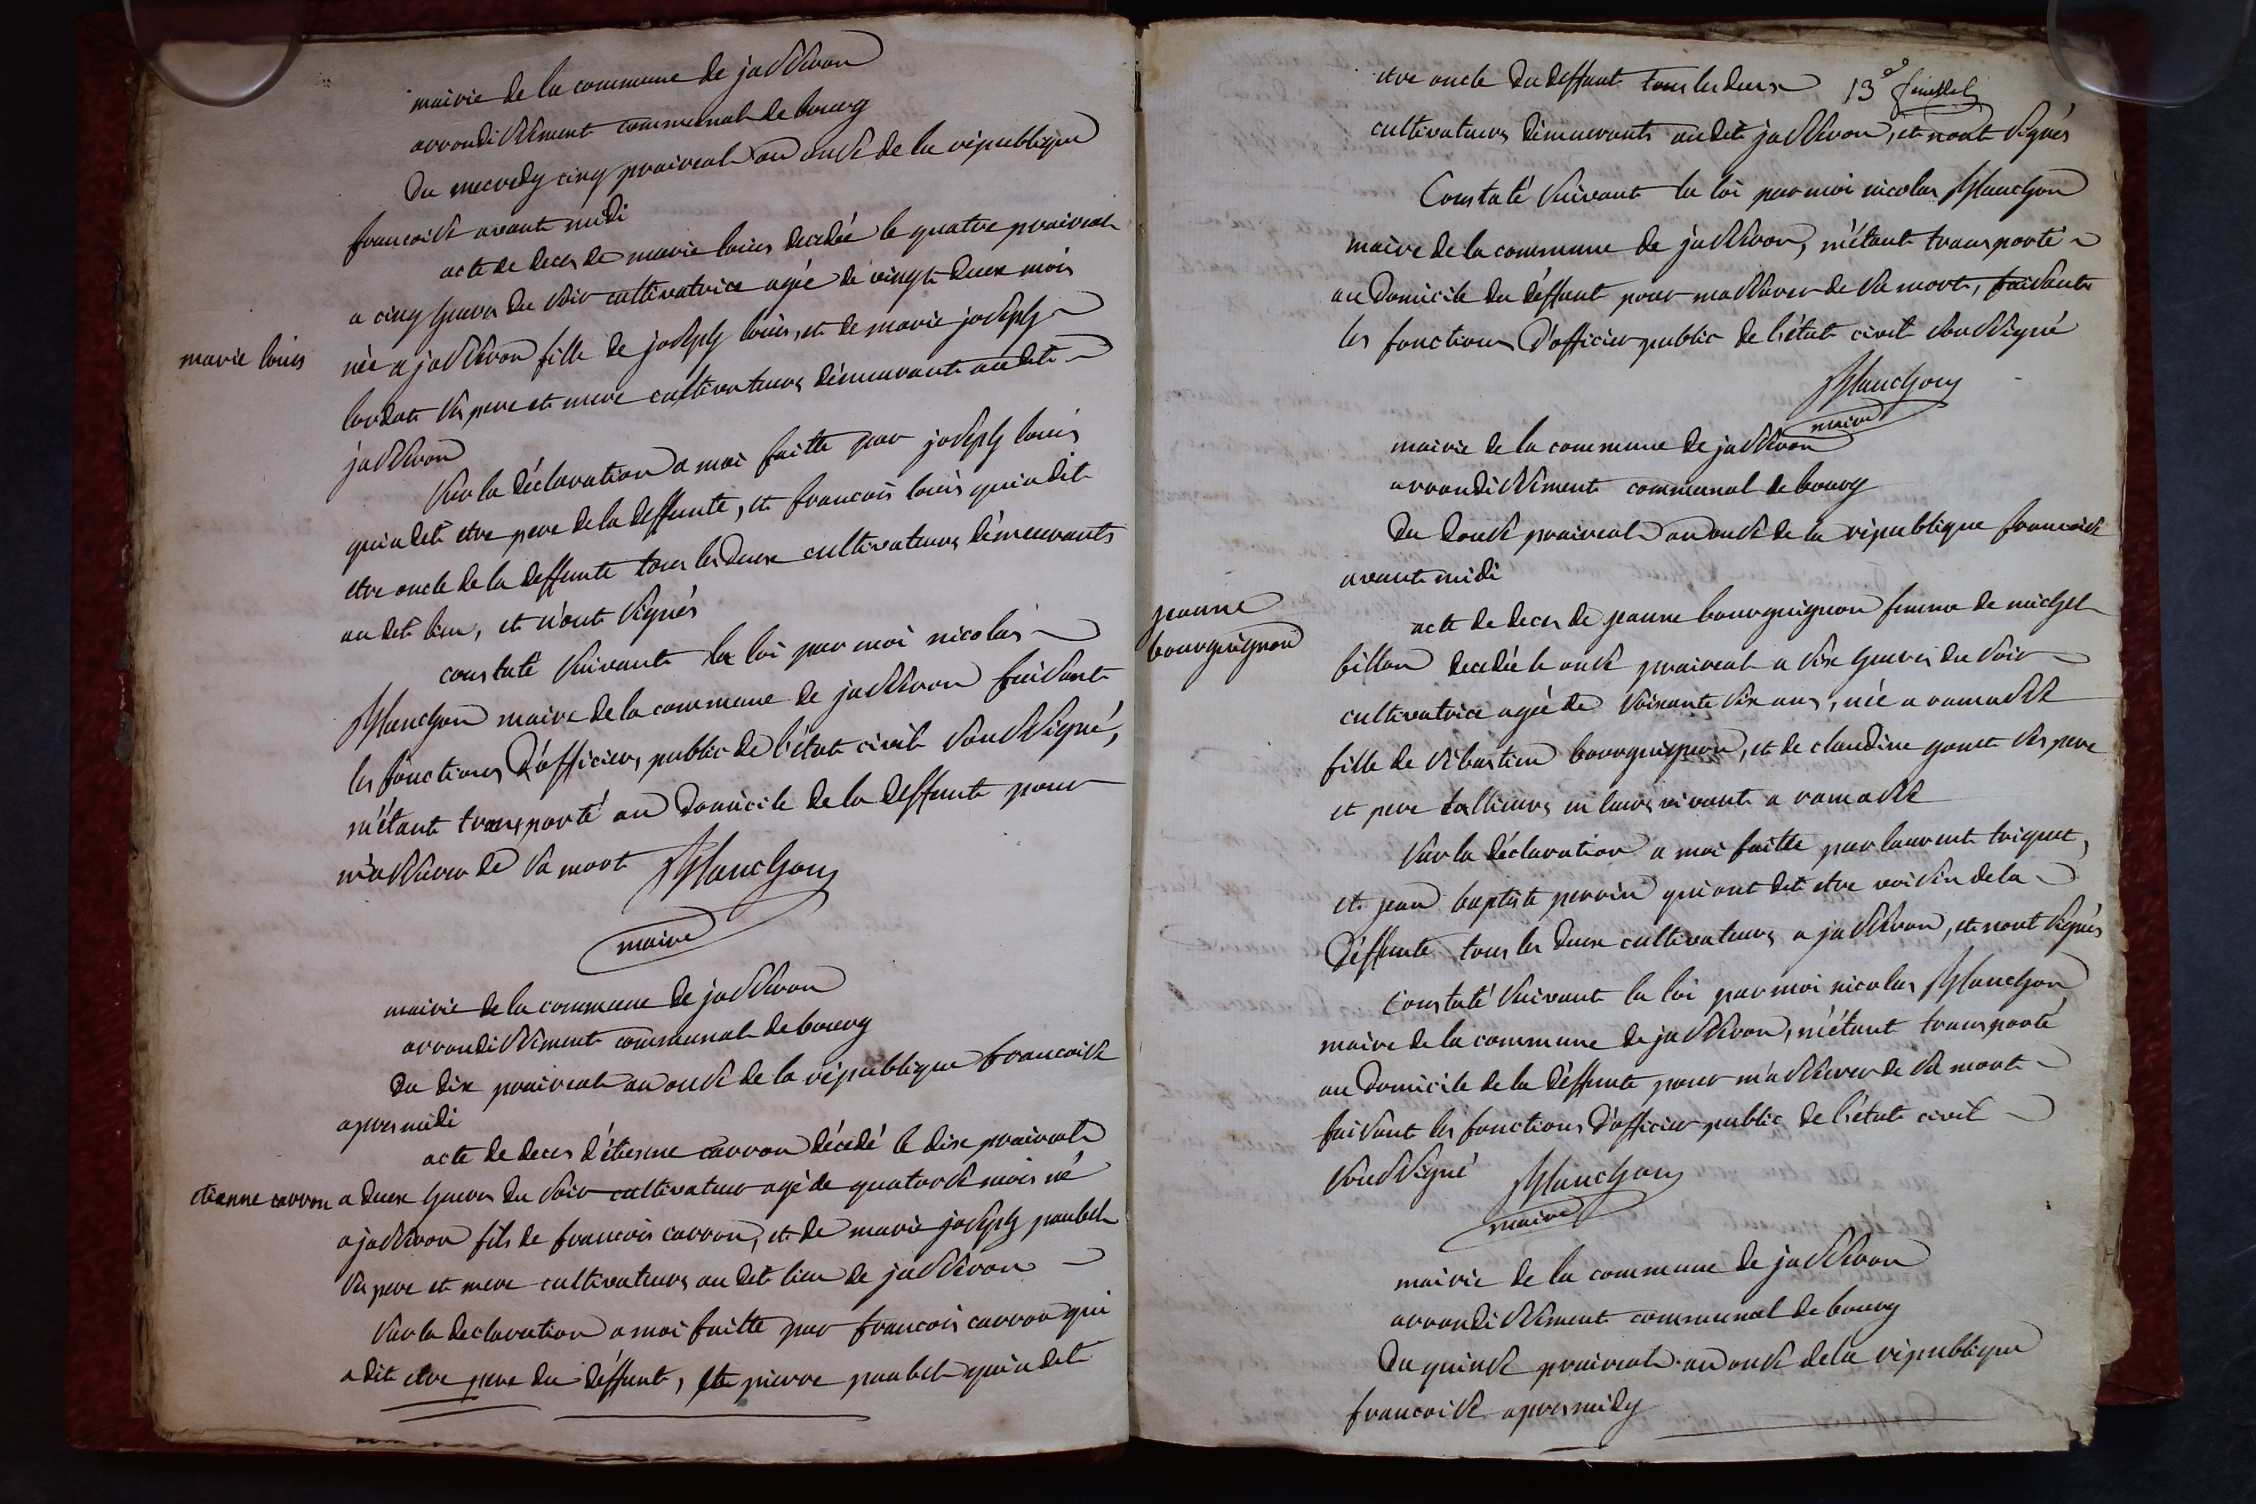 mairie de la commune de jasseron
arrondissement communal de bourg
du mecredy cinq praireal an onse de la républiqu
francoise avant midi
acte de deces de marie louis decedée le quatre praireal
a cinq heures du soir cultivatrice agée de vingt deux mois
marie louis
née a jasseron fille de joseph louis, et de marie joseph
lardat ses pere et mere cultivateurs démeurants audit
jasseron
sur la déclaration a moi faitte par joseph louis
qui a dit etre pere de la deffunte, et francois louis qui a dit
etre oncle de la deffunte tous les deux cultivateurs démeurants
au dit lieu, et n'ont signés
constaté suivant la loi par moi nicolas
Planchon maire de la commune de jasseron faisant
les fonctions d'officiers public de l'état civil soussigné,
m'étant transporté au domicile de la deffunte pour
m'assurer de sa mort Planchon
maire
mairie de la commune de jasseron
arrondissement communal de bourg
du dix praireal an onse de la république francoise
apres midi
acte de deces d'étienne carron décedé le dix praireal
etienne carron
a deux heures du soir cultivateur agé de quatorse mois né
a jasseron fils de francois carron, et de marie joseph paubel
ses pere et mere cultivateurs au dit lieu de jasseron
sur la declaration a moi faitte par francois carron qui
a dit etre pere du déffunt, et pierre paubel qui a dit
etre oncle du deffunt tous les deux
13e
cultivateurs démeurants audit jasseron, et nont signés
Constaté suivant la loi par moi nicolas Planchon
maire de la commune de jasseron, m'étant transporté
au domicile du déffunt pour massurer de sa mort, faisant
les fonctions d'officier public de l'état civil soussigné
Planchon
maire
mairie de la commune de jasseron
arrondissement communal de bourg
du douse praireal an onse de la république francoise
avant midi
jeanne
bourguignon
acte de deces de jeanne bourguignon femme de michel
billon decedée le onse praireal a six heures du soir
cultivatrice agée de soixante six ans, née a ramasse
fille de sébastien bourguignon, et de claudine gonet ses pere
et pere tallieurs en leurs vivant a ramasse
sur la déclaration a moi faitte par laurent triquet,
et jean baptiste perrin qui ont dit etre voisin de la
déffunte tous les deux cultivateurs a jasseron, et nont signés
Constaté suivant la loi par moi nicolas Planchon
maire de la commune de jasseron, m'étant transporté
au domicile de la déffunte pour m'assurer de sa mort
faisant les fonctions d'officier public de l'état civil
soussigné Planchon
maire
mairie de la commune de jasseron
arrondissement communal de bourg
du quinse praireal an onse de la république
francoise apres midy